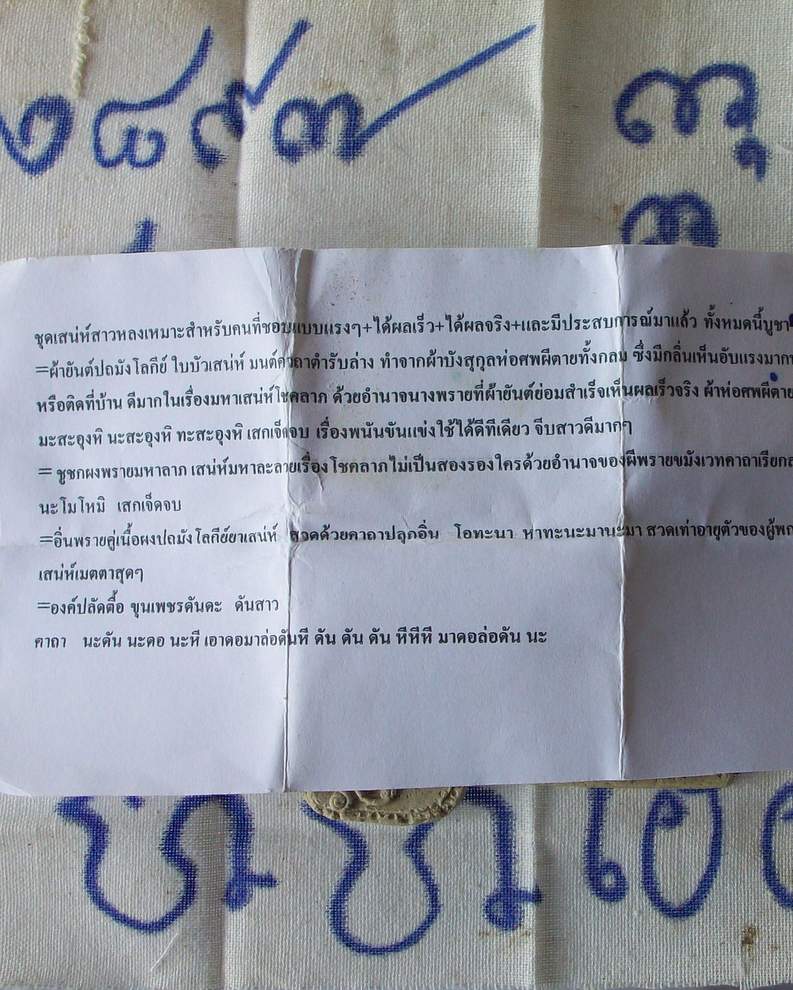 ๑๘๙๓
ชุดเสน่ห์สาวหลงเหมาะสำหรับคนที่ชอบแบบแรงๆ+ได้ผลเร็ว+ได้ผลจริง+และมีประสบการณ์มาแล้ว ทั้งหมดนี้บูชา
=ผ้ายันต์ปถมังโลกีย์ ใบบัวเสน่ห์ มนต์คาถาตำรับล่าง ทำจากผ้าบังสุกุลห่อศพผีตายทั้งกลม ซึ่งมีกลิ่นเห็นอับแรงมาก
หรือติดที่บ้าน ดีมากในเรื่องมหาเสน่ห์โชคลาภ ด้วยอำนาจนางพรายที่ผ้ายันต์ย่อมสำเร็จเห็นผลเร็วจริง ผ้าห่อศพผีตาย
มะสะอุงหิ นะสะอุงหิ ทะสะอุงหิ เสกเจ็ดจบ เรื่องพนันขันแข่งใช้ได้ดีทีเดียว จีบสาวดีมากๆ
= ชูชกผงพรายมหาลาภ เสน่ห์มหาละลายเรื่องโชคลาภไม่เป็นสองรองใครด้วยอำนาจของผีพรายขมังเวทคาถาเรียก
นะโมโหมิ เสกเจ็ดจบ
=อิ่นพรายคู่เนื้อผงปถมังโลกีย์ยาเสน่ห์ สวดด้วยคาถาปลุกอิ่น โอทะนา หาทะนะมานะมา สวดเท่าอายุตัวของผู้
เสน่ห์เมตตาสุดๆ
=องค์ปลัดตื้อ ขุนเพชรดันดะ ดันสาว
คาถา นะดัน นะดอ นะหี เอาดอมาล่อดันหี ดัน ดัน ดัน หีหีหี มาดอล่อดัน นะ